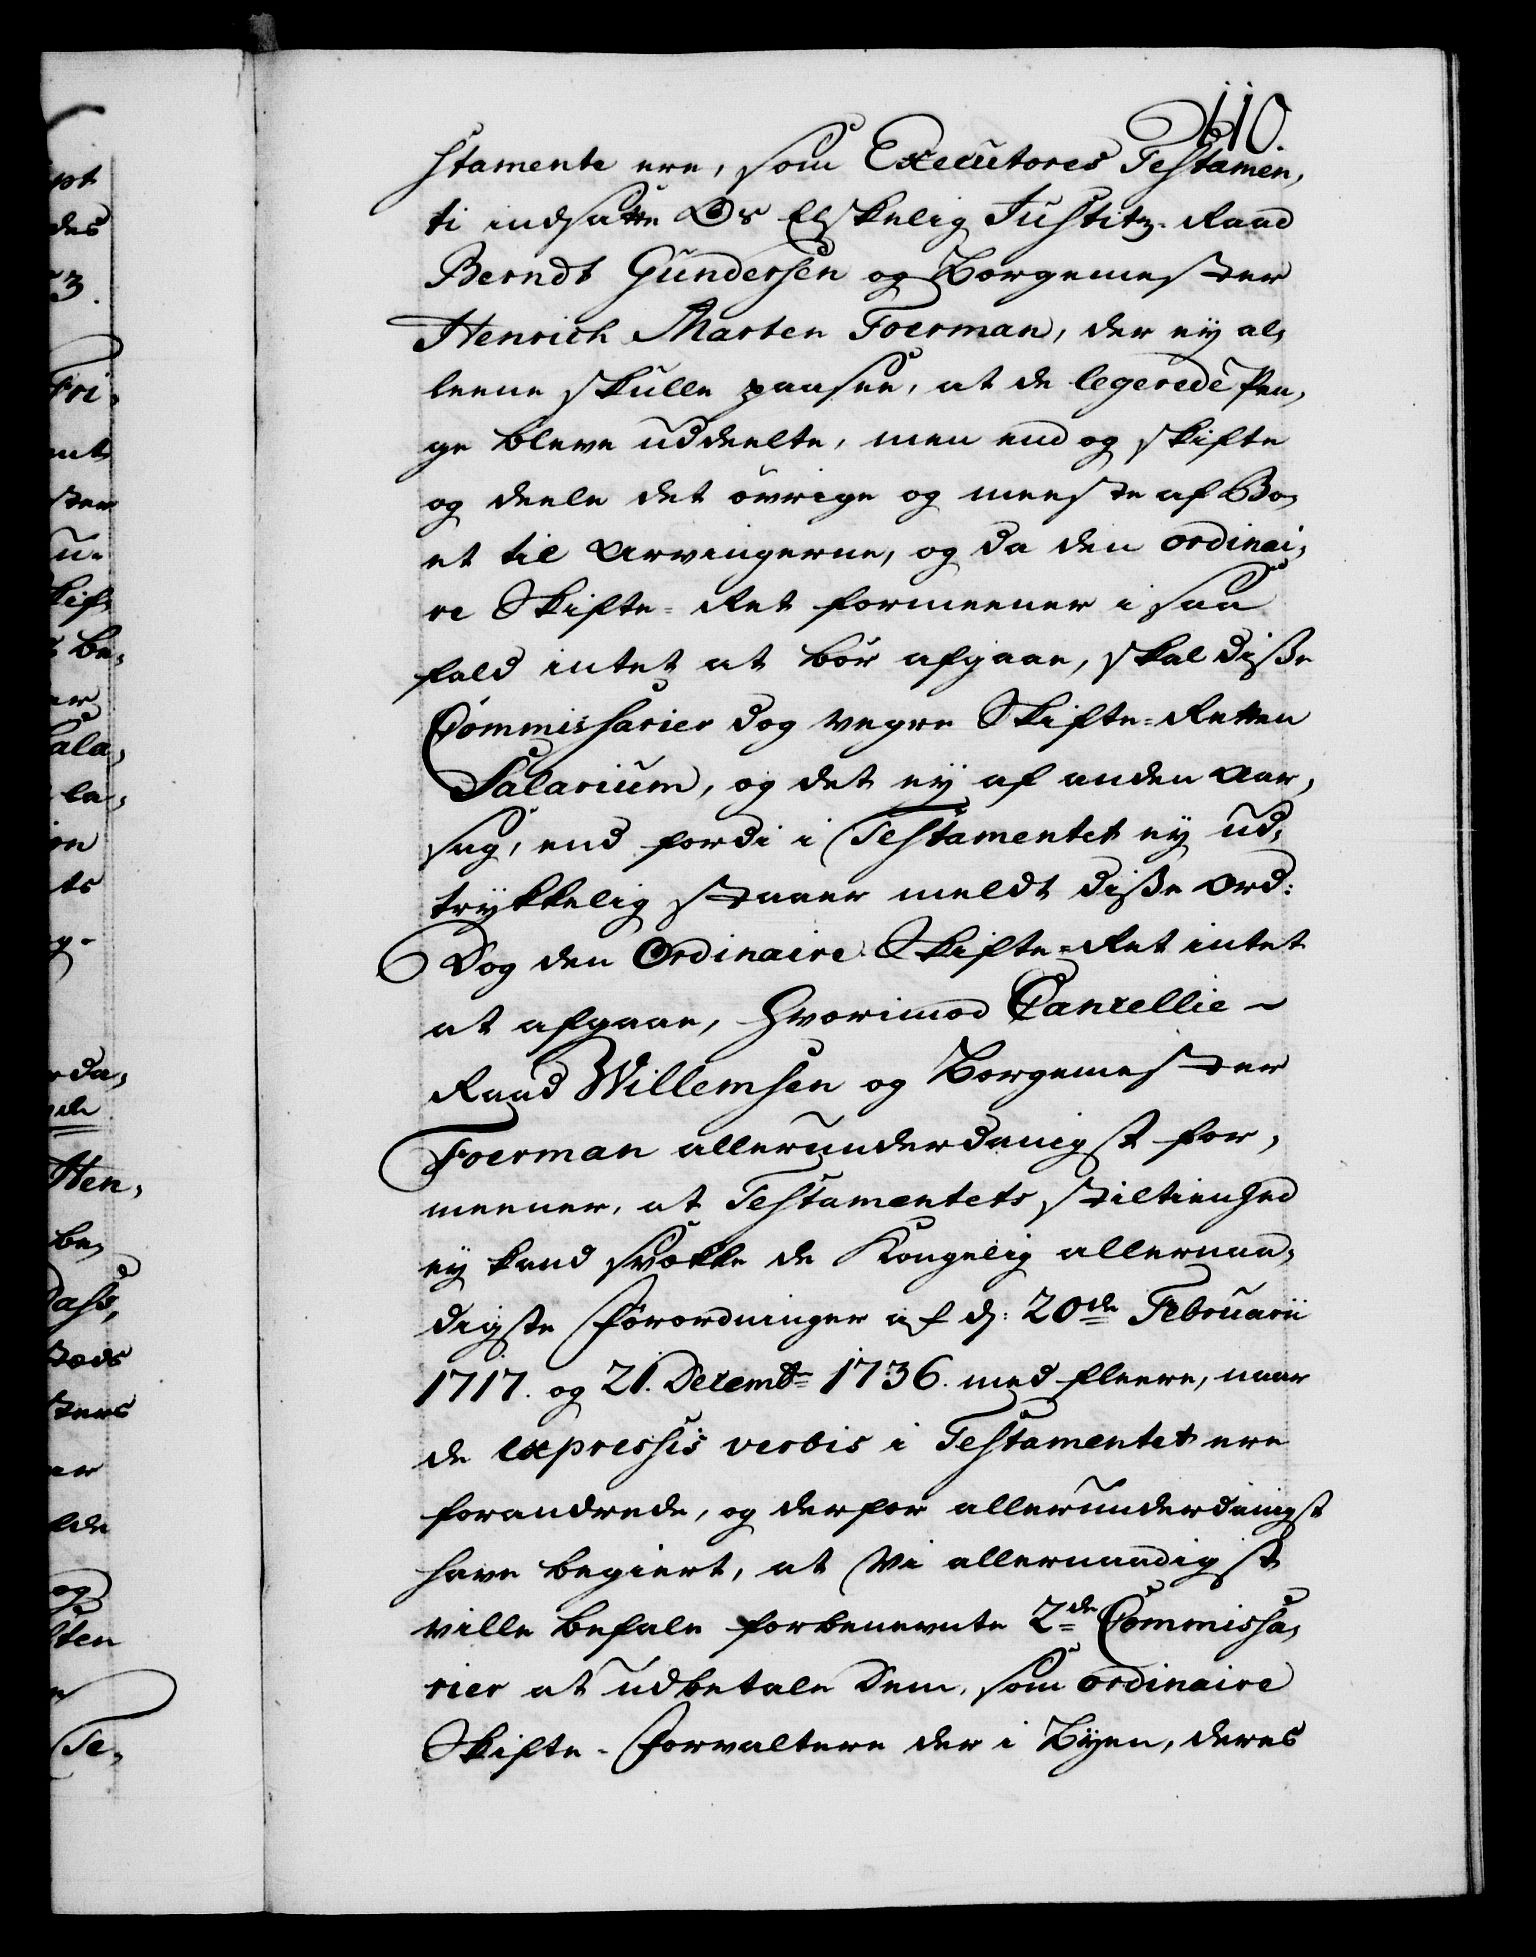 110.
stamente ere, som Executores Testamen,
ti indsatte Os Elskelig Justitz-Raad
Berndt Gundersen og Borgemester
Henrich Marten Foerman, der ey al,
leene skulle paasee, at de legerede Pen,
ge bleve uddeelte, men end og skifte
og deele det övrige og meeste af Bo,
et til Arvingerne, og da den ordinai,
re Skifte-Ret formeener i saa
fald intet at bör afgaae, skal disse
Commissarier dog vegre Skifte-Retten
Salarium, og det ey af anden Aar,
sag, end fordi i Testamentet ey ud,
trykkelig staaer meldt disse Ord:
Dog den Ordinaire Skifte-Ret intet
at afgaae, hvorimod Cancellie-
Raad Willemsen og Borgemester
Foerman allerunderdanigst for,
meener, at Testamentets Stiltienhed
ey kand svække de Kongelig allernaa,
digste Forordninger af d: 20de Februarii
1717. og 21. Decembr 1736. med fleere, naar
de expressis verbis i Testamentet ere
forandrede, og derfor allerunderdanigst
have begiert, at Vi allernaadigst
ville befale forbenevnte 2de Commissa,
rier at udbetale Dem, som ordinaire
Skifte-Forvaltere der i Byen, deres